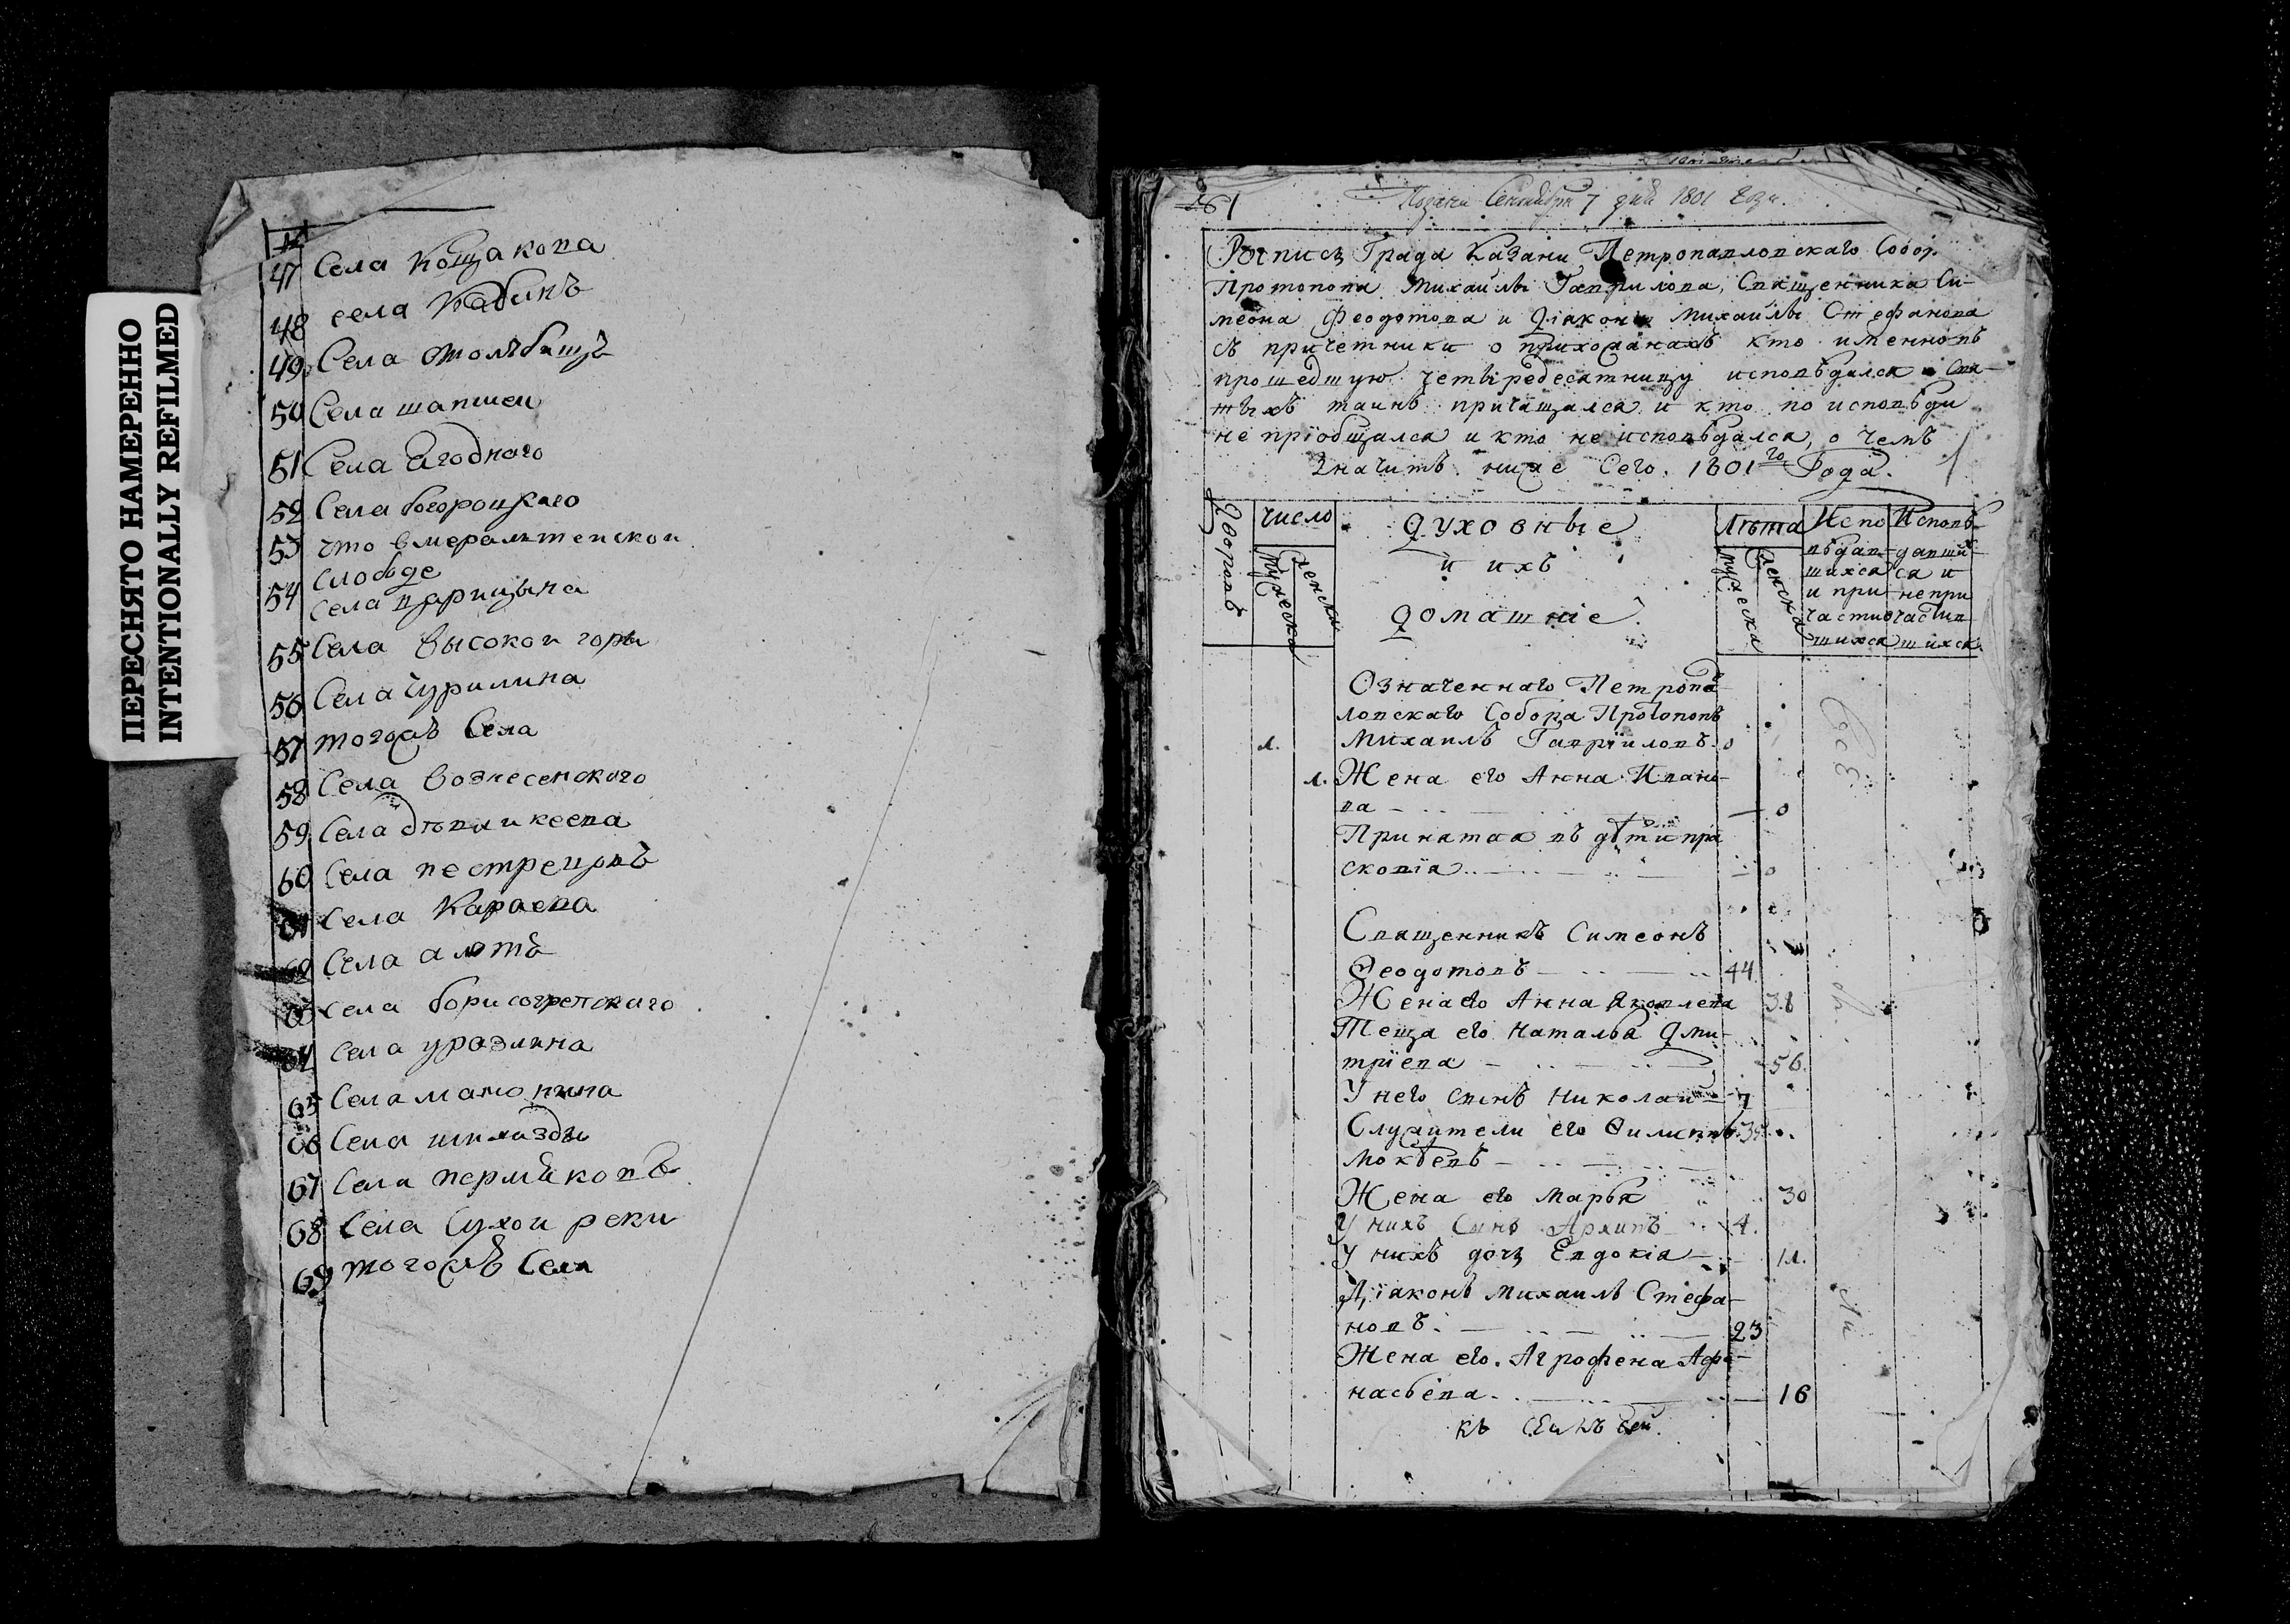 ПЕРЕСНЯТО НАМЕРЕННО
INTENTIONALLY REFILMED
47 Села Кощакова
48 села Кабинъ
49 Села
50 Села шапшеи
51 Села Ягоднаго
52 Села богороцкаго
53 что вмералтеискои
слободе
54 села царицына
55 Села высокои горы
56 Села Чурилина
57 тогожъ Села
58 Села вознесенскаго
59 Села девликеева
60 Села пестрецовъ
61 Села Караева
62 Села алатъ
63 Села борисоглебскаго
64 Села уразлина
65 Села мамонина
66 Села
67 Села пермяковъ
68 Села Сухои реки
69 тогожъ Села
Сентября 7 дня 1801 года.
Роспись Града Казани Петропавловскаго Собор.
Протопопа Михаилы Гаврилова, Священника Си-
меона Феодотова и Діакона Михаилы Стефанова
съ причетники о прихожанахъ кто именно въ
прошедшую четыредесятницу исповѣдался и Свя-
тыхъ таинъ причащался и кто по исповѣди
не пріобщался и кто не исповѣдался, о чемъ
Значитъ ниже Сего. 1801го Года.
Дворовъ
Число
Мужеска
женска
Духовные
и ихъ
домашніе.
Лѣта
Мужеска
женска
Испо
вѣдав-
шихся
и при
частив
шихся
Исповѣ-
давших
ся и
непри
частив
шихся.
Означеннаго Петропав
ловскаго Собора Протопопъ
1. Михаилъ Гавріиловъ. 0
1. Жена его Анна Ивано-
ва — 0
Принятая въ дѣти пра
сковія — 0
Священникъ Симеонъ
Феодотовъ — 44
Жена его Анна Яковлева 38
Теща его Наталья Дми-
тріева — 56.
У него Сынъ Николаи — 7
Служители его Филиппъ
Мокѣевъ —
Жена его Марья 30
У нихъ Сынъ Архипъ 4.
У нихъ дочь Евдокія — 11.
Діаконъ Михаилъ Стефа-
новъ. — 23
Жена его. Агрофена Афа-
насьева. — 16